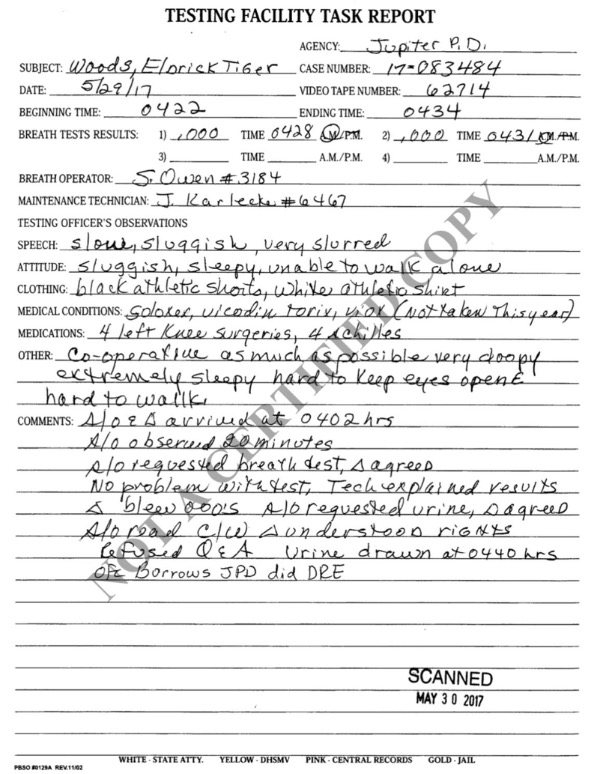 TESTING FACILITY TASK REPORT
AGENCY: Jupiter P.D.
SUBJECT: Woods, Eldrick Tiger CASE NUMBER: 17-083484
DATE: 5/29/17 VIDEO TAPE NUMBER: 62714
BEGINNING TIME: 0422 ENDING TIME: 0434
BREATH TESTS RESULTS: 1) .000 TIME 0428 A.M./P.M. 2) .000 TIME 0431 A.M./P.M.
3) TIME A.M./P.M. 4) TIME A.M./P.M.
BREATH OPERATOR: S. Owen #3184
MAINTENANCE TECHNICIAN: J. Karlecke #6467
TESTING OFFICER'S OBSERVATIONS
SPEECH: slow, sluggish, very slurred
ATTITUDE: sluggish, sleepy, unable to walk alone
CLOTHING: black athletic shorts, white athletic shirt
MEDICAL CONDITIONS: Soloxer, vicodin torix, viox (not taken This year)
MEDICATIONS: 4 left Knee surgeries, 4 achilles
OTHER: Co-operative as much as possible very doopy
extremely sleepy hard to keep eyes open &
hard to walk
COMMENTS: A/o & Δ arrived at 0402 hrs
A/o observed 20 minutes
A/o requested breath test, Δ agreed
No problem with test, Tech explained results
Δ blew 000's A/o requested urine, Δ agreed
A/o read C/W Δ understood rights
Refused Q&A Urine drawn at 0440 hrs
Ofc Borrows JPD did DRE
NOT A CERTIFIED COPY
SCANNED
MAY 30 2017
WHITE - STATE ATTY. YELLOW - DHSMV PINK - CENTRAL RECORDS GOLD - JAIL
PBSO #0129A REV.11/02